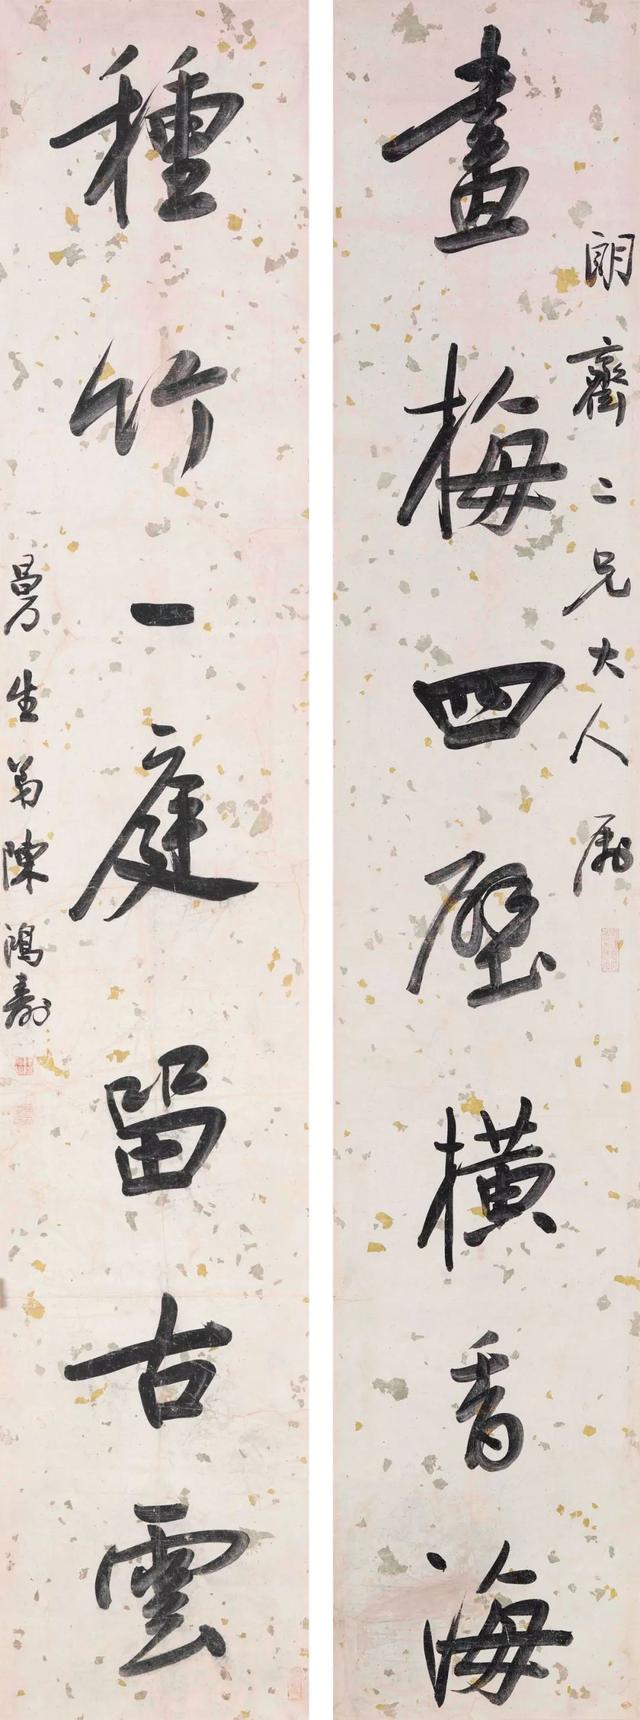 朗齋二兄大人属
畫梅四壁橫香海
種竹一庭留古雲
曼生弟陳鴻壽